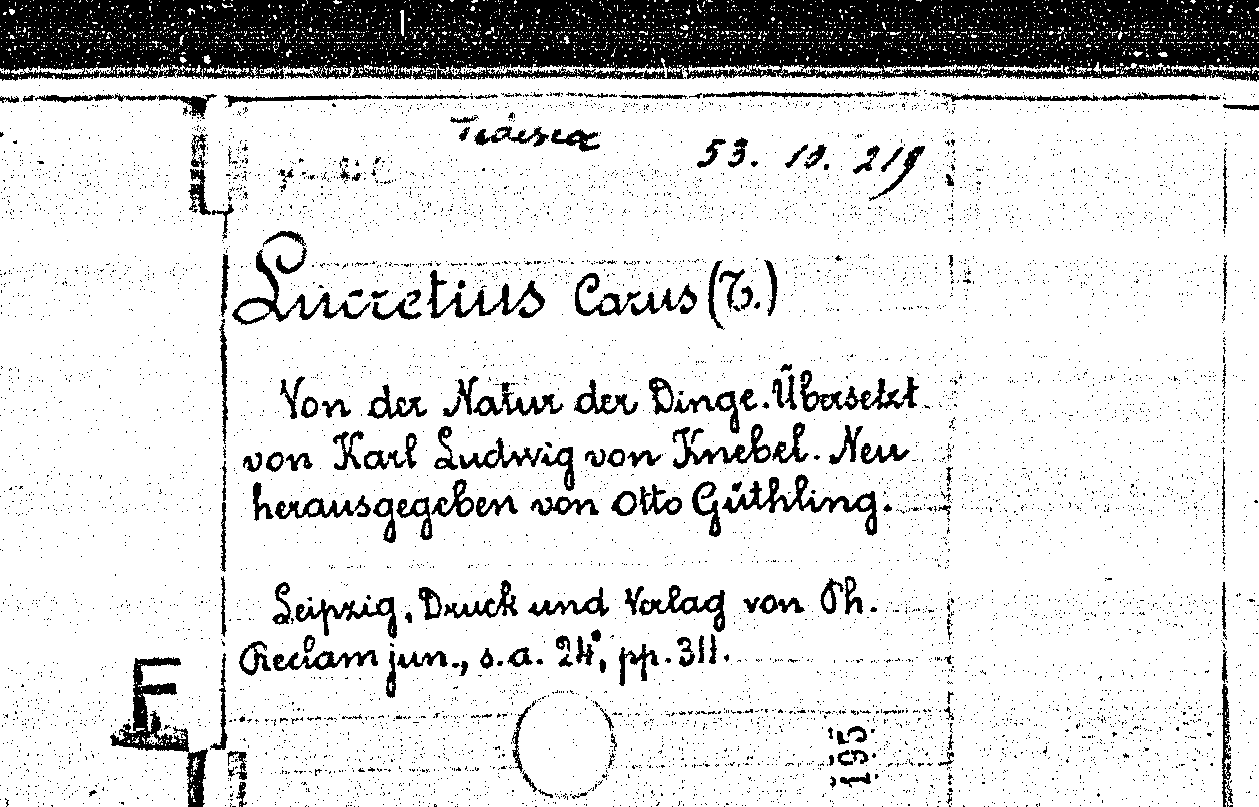 Tedesca
53. 10. 219
Lucretius Carus (T.)
Von der Natur der Dinge. Übersetzt
von Karl Ludwig von Knebel. Neu
herausgegeben von Otto Güthling.
Leipzig, Druck und Verlag von Ph.
Reclam jun., s.a. 24°, pp. 311.
F
195